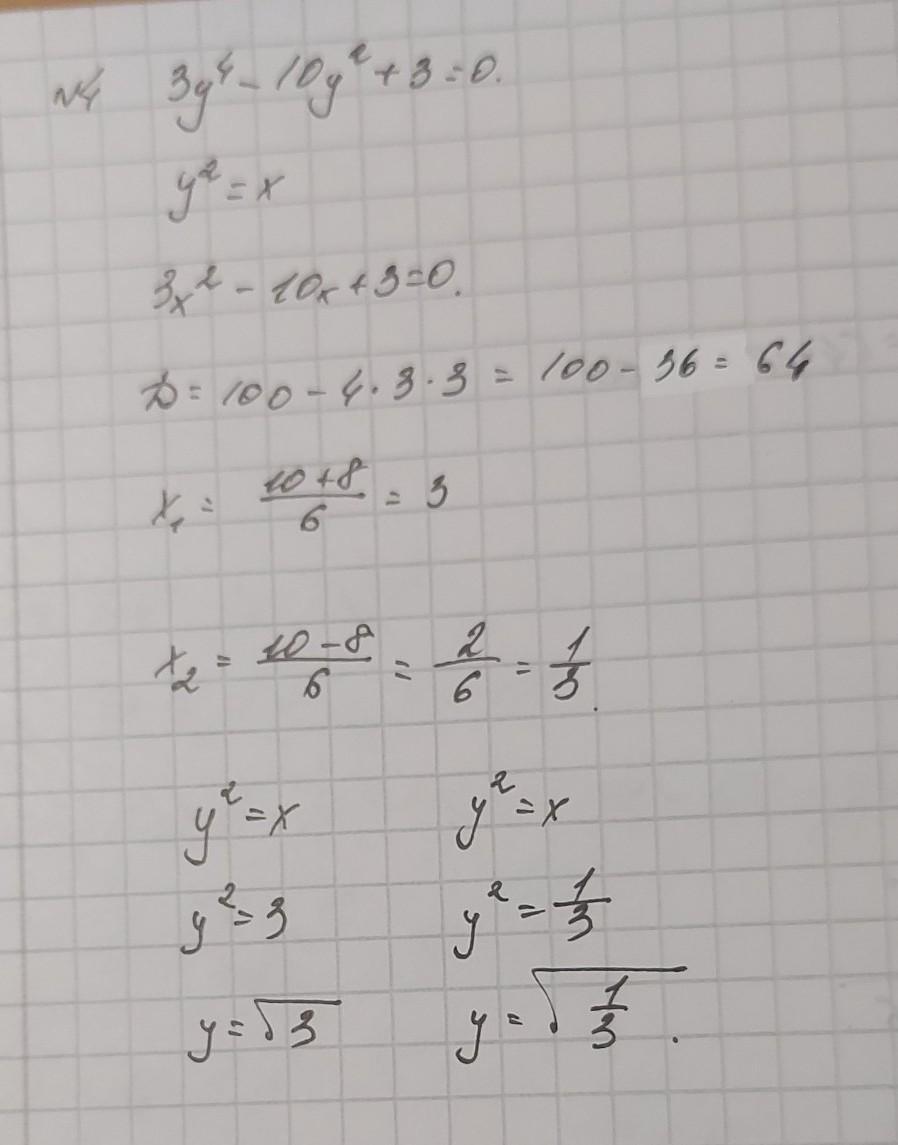 №4 3y⁴ - 10y² + 3 = 0.
y² = x
3x² - 10x + 3 = 0.
D = 100 - 4 · 3 · 3 = 100 - 36 = 64
x₁ = (10 + 8)/6 = 3
x₂ = (10 - 8)/6 = 2/6 = 1/3.
y² = x y² = x
y² = 3 y² = 1/3
y = √3 y = √(1/3).